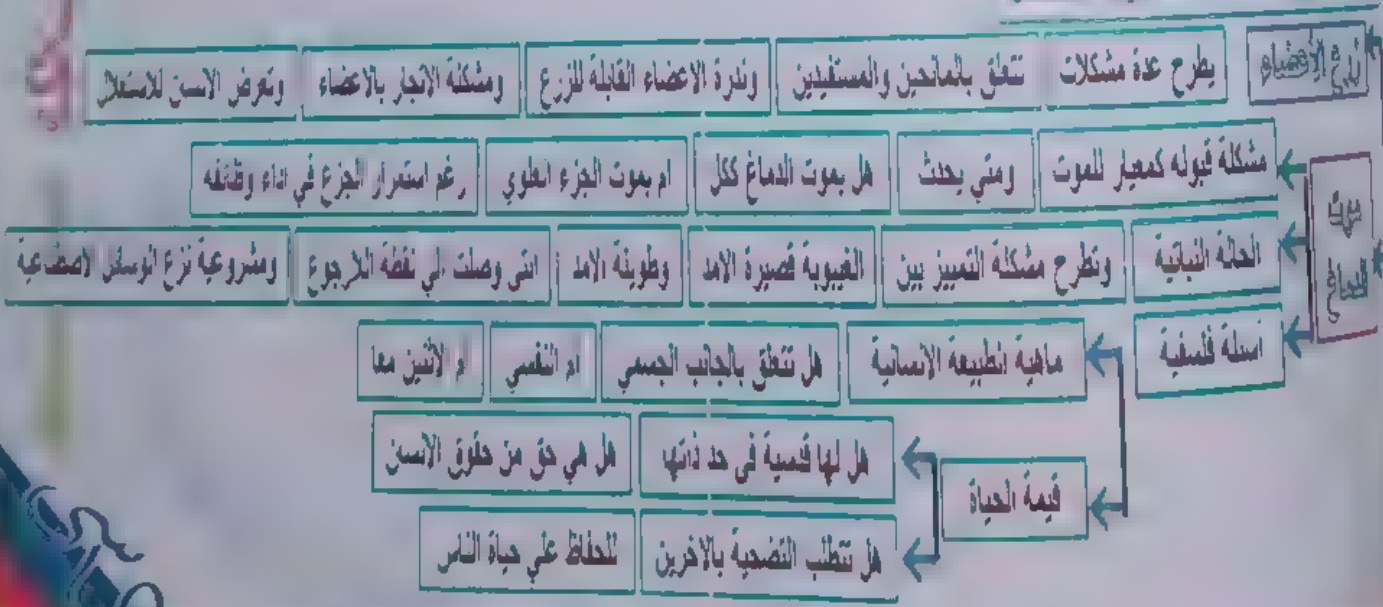 زرع الأعضاء يطرح عدة مشكلات تتعلق بالمانحين والمستفيدين وندرة الاعضاء القابلة للزرع ومشكلة الاتجار بالاعضاء وتعرض الانسن للاستغلال
موت الدماغ
مشكلة قبوله كمعيار للموت ومتي يحدث هل بموت الدماغ ككل ام بموت الجزء العلوي رغم استمرار الجزع في اداء وظائفه
الحالة النباتية وتطرح مشكلة التمييز بين الغيبوبة قصيرة الامد وطويلة الامد التي وصلت الي نقطة اللارجوع ومشروعية نزع الوسائل الاصطناعية
اسئلة فلسفية ماهية الطبيعة الانسانية هل تتعلق بالجانب الجسمي ام النفسي ام الاثنين معا
قيمة الحياة
هل لها قدسية في حد ذاتها هل هي حق من حقوق الانسن
هل تتطلب التضحية بالاخرين للحفاظ علي حياة الناس